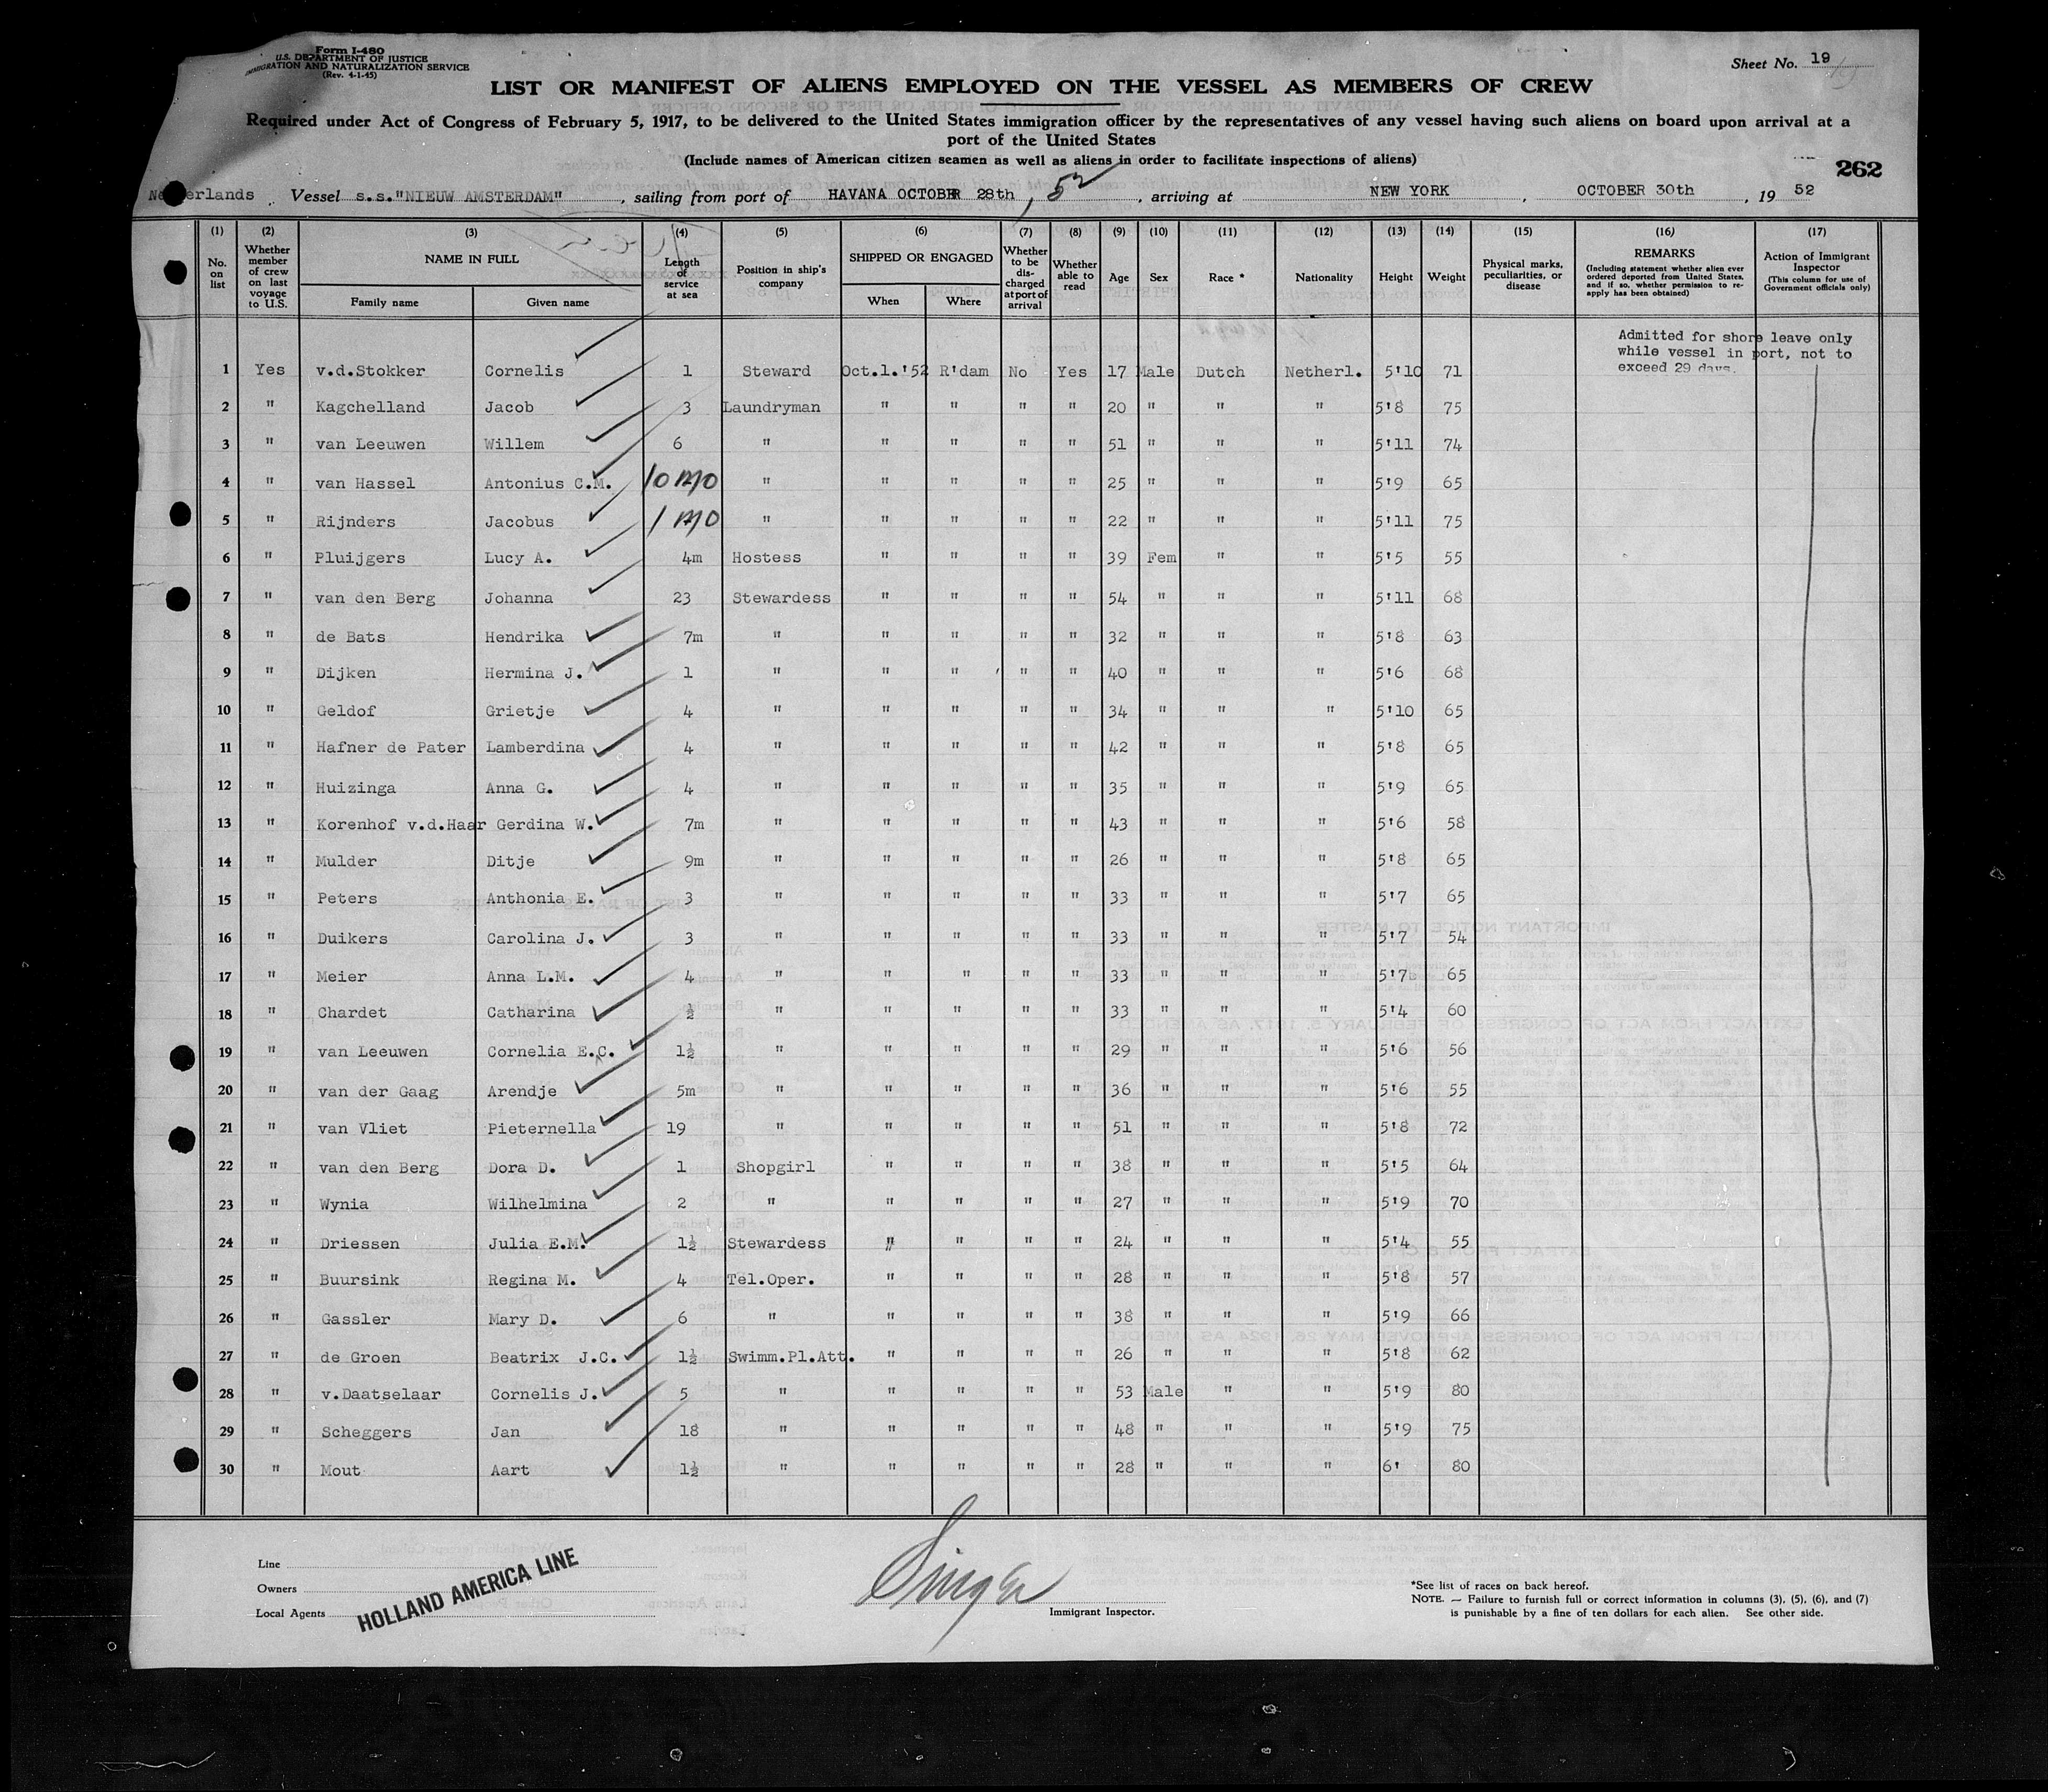 Form I-480
U.S. DEPARTMENT OF JUSTICE
IMMIGRATION AND NATURALIZATION SERVICE
(Rev. 4-1-45)
Sheet No. 19
LIST OR MANIFEST OF ALIENS EMPLOYED ON THE VESSEL AS MEMBERS OF CREW
Required under Act of Congress of February 5, 1917, to be delivered to the United States immigration officer by the representatives of any vessel having such aliens on board upon arrival at a
port of the United States
(Include names of American citizen seamen as well as aliens in order to facilitate inspections of aliens)
262
Netherlands Vessel s.s. "NIEUW AMSTERDAM", sailing from port of HAVANA OCTOBER 28th, 52, arriving at NEW YORK, OCTOBER 30th, 19 52
(1) (2) (3) (4) (5) (6) (7) (8) (9) (10) (11) (12) (13) (14) (15) (16) (17)
No. on list | Whether member of crew on last voyage to U.S. | NAME IN FULL Family name Given name | Length of service at sea | Position in ship's company | SHIPPED OR ENGAGED When Where | Whether to be discharged at port of arrival | Whether able to read | Age | Sex | Race * | Nationality | Height | Weight | Physical marks, peculiarities, or disease | REMARKS (Including statement whether alien ever ordered deported from United States, and if so, whether permission to reapply has been obtained) | Action of Immigrant Inspector (This column for use of Government officials only)
Admitted for shore leave only
while vessel in port, not to
exceed 29 days.
1 Yes v.d.Stokker Cornelis 1 Steward Oct.1.'52 R'dam No Yes 17 Male Dutch Netherl. 5'10 71
2 " Kagchelland Jacob 3 Laundryman " " " " 20 " " " 5'8 75
3 " van Leeuwen Willem 6 " " " " " 51 " " " 5'11 74
4 " van Hassel Antonius C.M. 10 MO " " " " " 25 " " " 5'9 65
5 " Rijnders Jacobus 1 MO " " " " " 22 " " " 5'11 75
6 " Pluijgers Lucy A. 4m Hostess " " " " 39 Fem " " 5'5 55
7 " van den Berg Johanna 23 Stewardess " " " " 54 " " " 5'11 68
8 " de Bats Hendrika 7m " " " " " 32 " " " 5'8 63
9 " Dijken Hermina J. 1 " " " " " 40 " " " 5'6 68
10 " Geldof Grietje 4 " " " " " 34 " " " 5'10 65
11 " Hafner de Pater Lamberdina 4 " " " " " 42 " " " 5'8 65
12 " Huizinga Anna G. 4 " " " " " 35 " " " 5'9 65
13 " Korenhof v.d.Haar Gerdina W. 7m " " " " " 43 " " " 5'6 58
14 " Mulder Ditje 9m " " " " " 26 " " " 5'8 65
15 " Peters Anthonia E. 3 " " " " " 33 " " " 5'7 65
16 " Duikers Carolina J. 3 " " " " " 33 " " " 5'7 54
17 " Meier Anna L.M. 4 " " " " " 33 " " " 5'7 65
18 " Chardet Catharina ½ " " " " " 33 " " " 5'4 60
19 " van Leeuwen Cornelia E.C. 1½ " " " " " 29 " " " 5'6 56
20 " van der Gaag Arendje 5m " " " " " 36 " " " 5'6 55
21 " van Vliet Pieternella 19 " " " " " 51 " " " 5'8 72
22 " van den Berg Dora D. 1 Shopgirl " " " " 38 " " " 5'5 64
23 " Wynia Wilhelmina 2 " " " " " 27 " " " 5'9 70
24 " Driessen Julia E.M. 1½ Stewardess " " " " 24 " " " 5'4 55
25 " Buursink Regina M. 4 Tel.Oper. " " " " 28 " " " 5'8 57
26 " Gassler Mary D. 6 " " " " " 38 " " " 5'9 66
27 " de Groen Beatrix J.C. 1½ Swimm.Pl.Att. " " " " 26 " " " 5'8 62
28 " v.Daatselaar Cornelis J. 5 " " " " " 53 Male " " 5'9 80
29 " Scheggers Jan 18 " " " " " 48 " " " 5'9 75
30 " Mout Aart 1½ " " " " " 28 " " " 6' 80
Line
Owners
Local Agents
HOLLAND AMERICA LINE
Singer
Immigrant Inspector.
*See list of races on back hereof.
NOTE. — Failure to furnish full or correct information in columns (3), (5), (6), and (7)
is punishable by a fine of ten dollars for each alien. See other side.